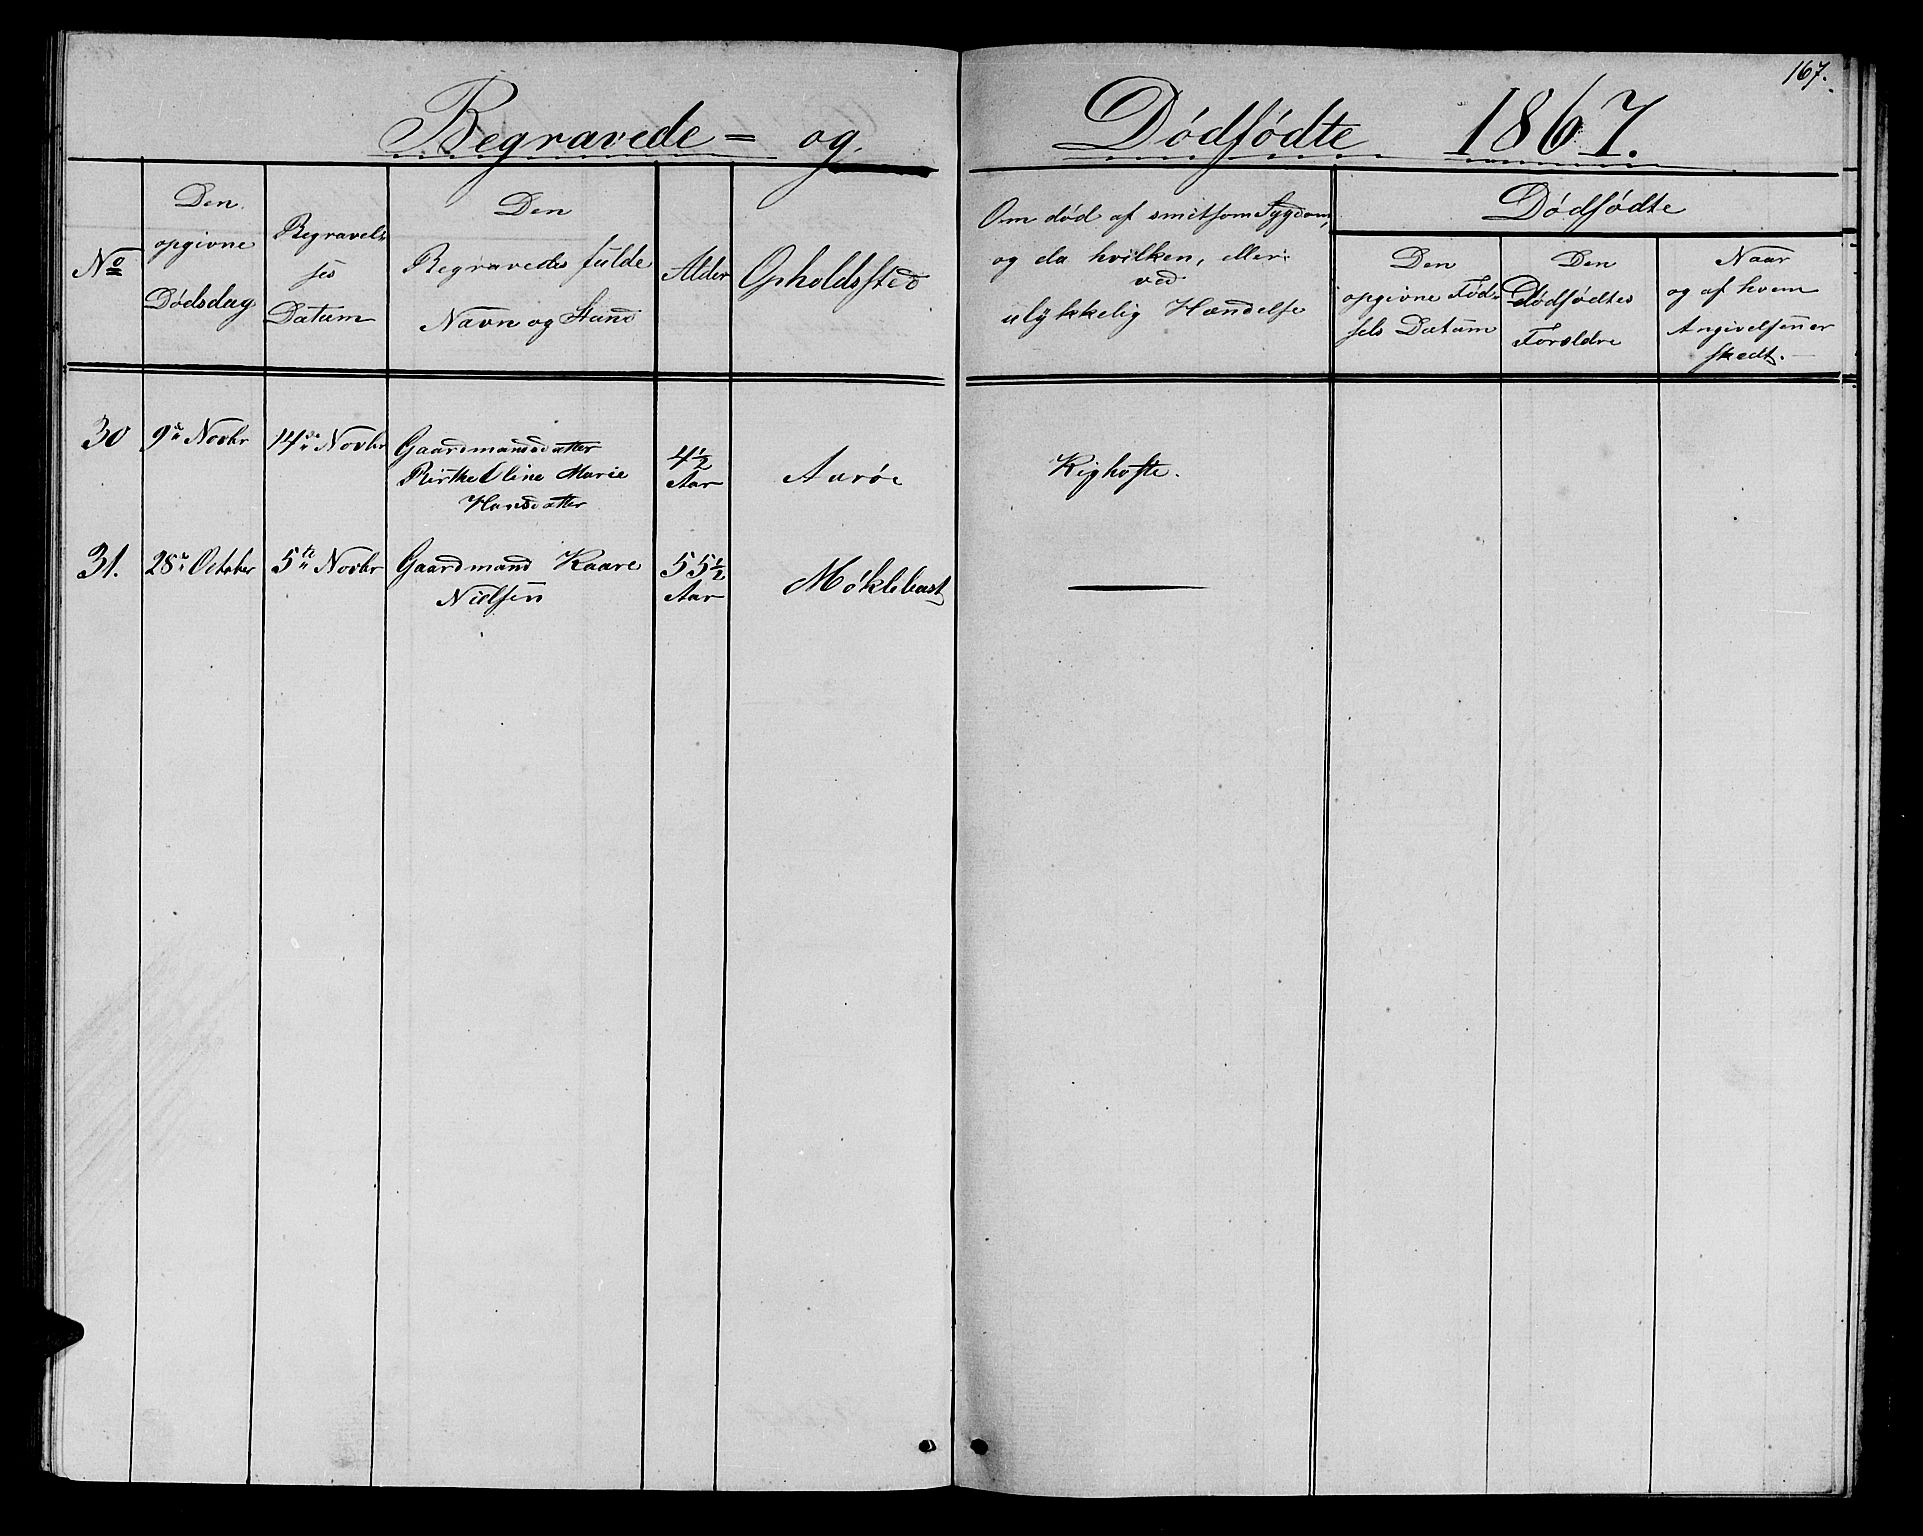 167.
Begravede = og
Dødfødte 1867.
No
Den
opgivne
Dødsdag
Begravel-
ses
Datum
Den
Begravedes fulde
Navn og Stand
Alder
Opholdssted
Om død af smitsom Sygdom,
og da hvilken, eller
ved
ulykkelig Hændelse
Dødfødte
Den
opgivne Fød-
sels Datum
Den
Dødfødtes
Forældre
Naar
og af hvem
Angivelsen er
skedt.
30 9de Novbr 14de Novbr Gaardmandsdatter
Birthe Eline Marie
Hansdatter
4½
Aar
Aarøe
Kighoste.
31. 28de October 5te Novbr Gaardmand Kaare
Nielsen
55½
Aar
Møklebust